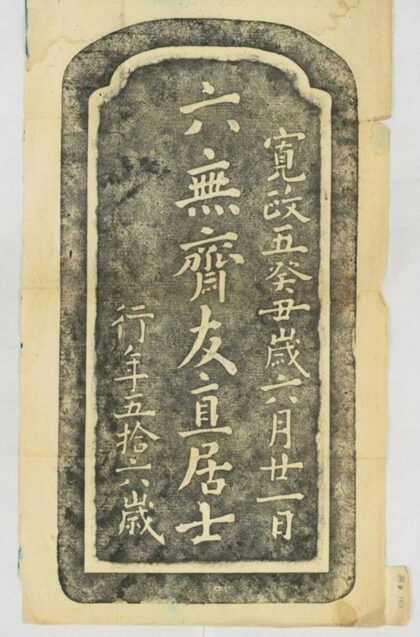 寛政五癸丑歳六月廿一日
六無齊友直居士
行年五拾六歳